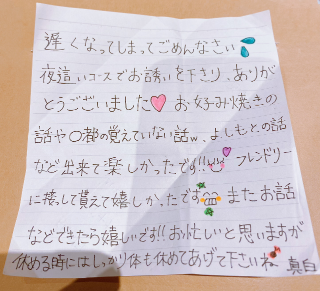 遅くなってしまってごめんなさい
夜這いコースでお誘いを下さり、ありが
とうございました お好み焼きの
話や〇都の覚えていない話w、よしもとの話
など出来て楽しかったです!! フレンドリー
に接して貰えて嬉しかったです またお話
などできたら嬉しいです!! お忙しいと思いますが
休める時にはしっかり体も休めてあげて下さいね 真白